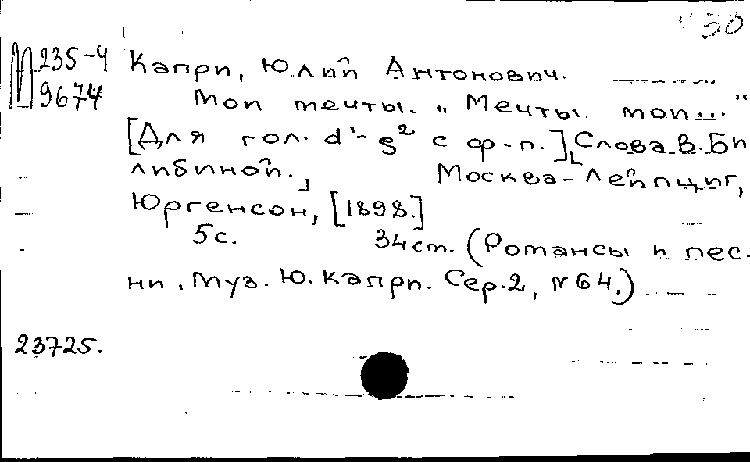 30
М 235-4
9674
Капри, Юлий Антонович.
Мои мечты. „Мечты мои..."
[Для гол. d¹-g² с ф-п.] [Слова В. Би
либиной.] Москва-Лейпциг,
Юргенсон, [1898.]
5с. 34см. (Романсы и пес-
ни. Муз. Ю. Капри. Сер.2, №64.)
23725.